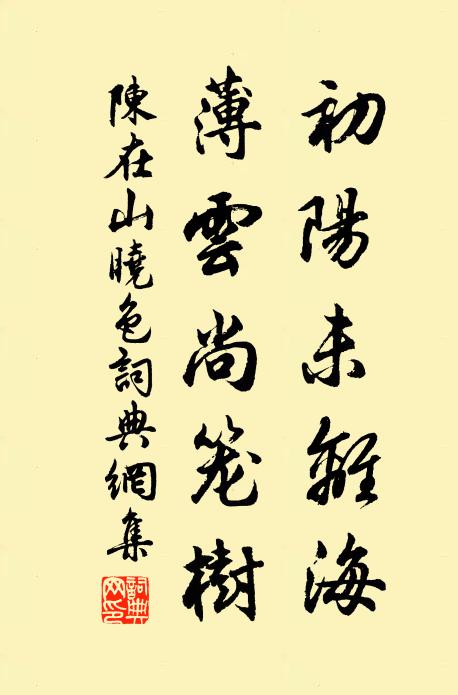 初陽未離海
薄雲尚笼樹
陳在山曉色詞典網集
詞典
网印